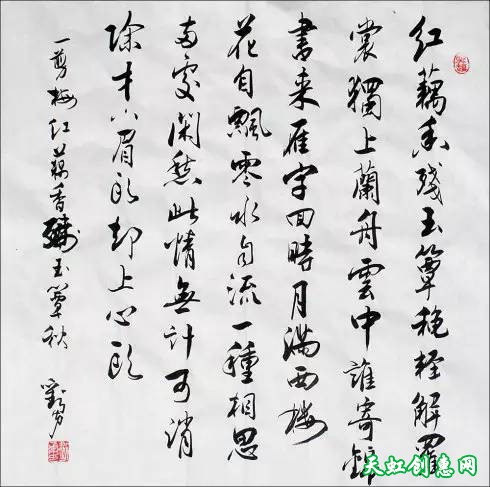 紅藕香殘玉簟秋輕解羅
裳獨上蘭舟雲中誰寄錦
書来雁字回時月滿西樓
花自飄零水自流一種相思
兩處閑愁此情無計可消
除才下眉頭却上心頭
一剪梅紅藕香殘玉簟秋
天虹创意网